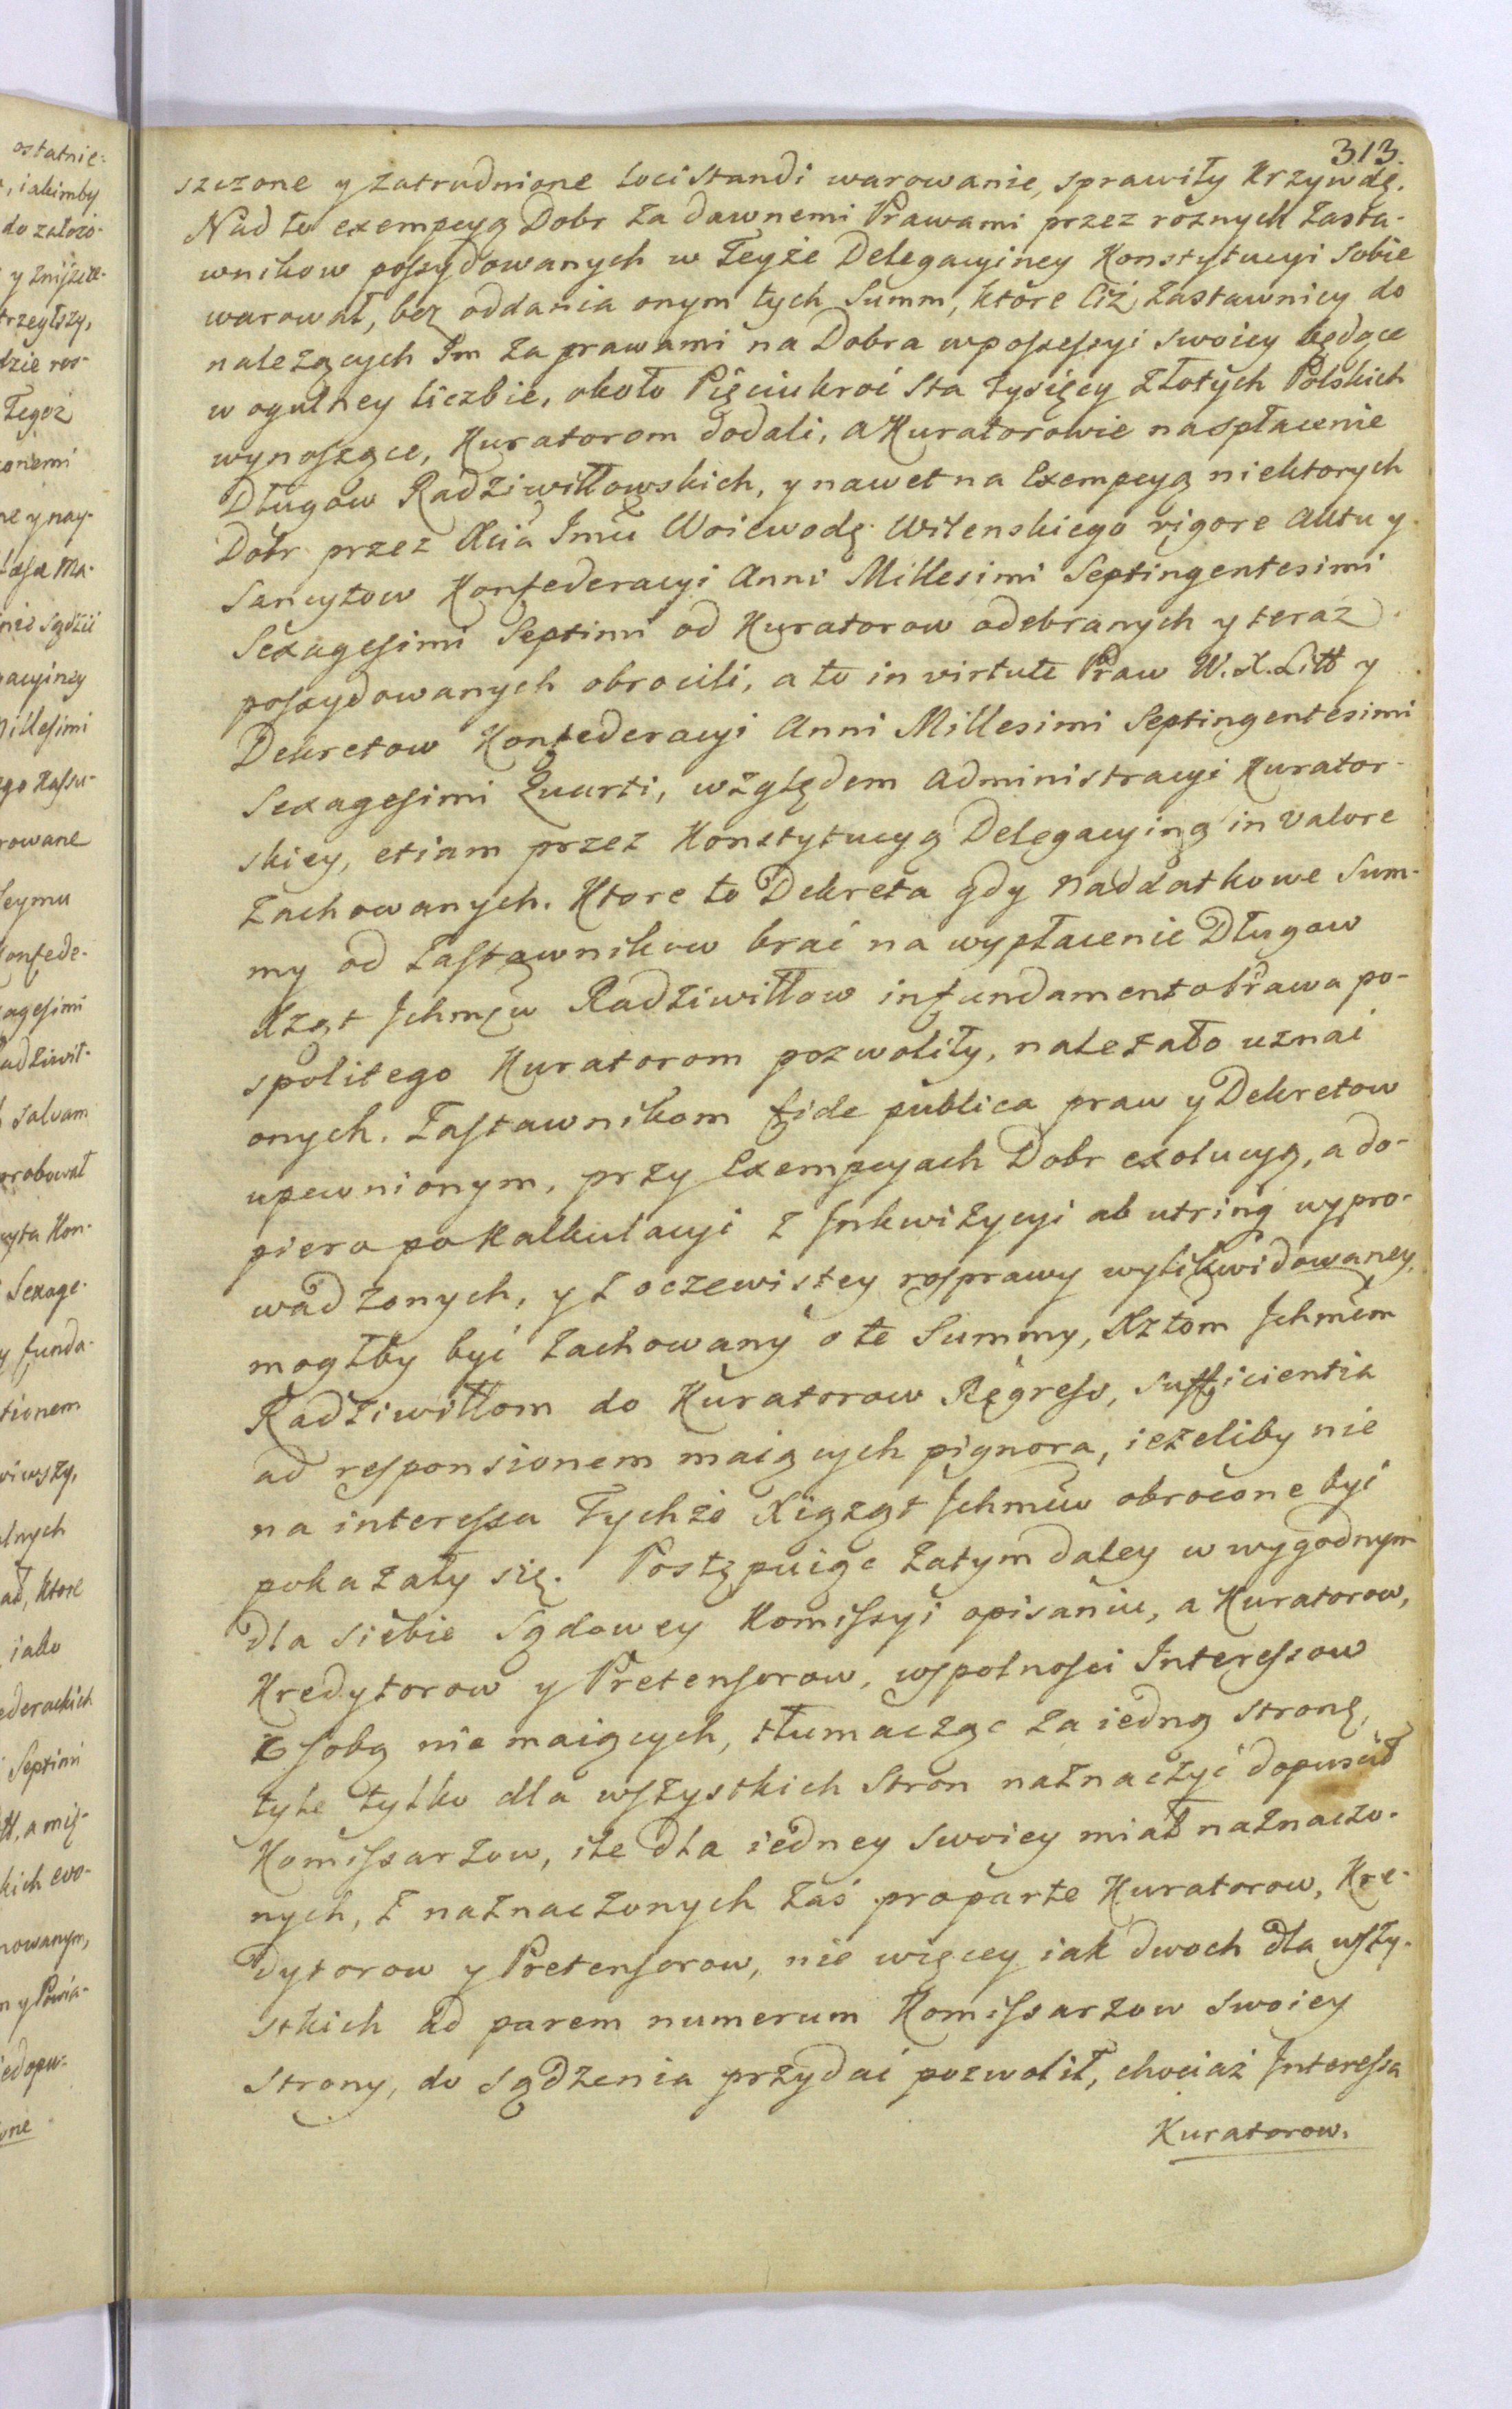 ostatnie:
, iakimby
do założo-
y zniszcze-
trzegłszy,
dzie ros-
Tegoż
conemi
ne y nay-
313.
szczone y zatrudnione loci standi warowanie, sprawiły Krzywdę.
Nad to exempcyą Dobr za dawnemi Prawami przez rożnych Zasta-
wnikow possydowanych w Teyże Delegacyiney Konstytucyi sobie
warował, bez oddania onym tych Summ, ktore Ciż Zastawnicy do
należących Im za prawami na Dobra w possessyi swoiey będące
w ogulney liczbie, około Pięciukroć sta tysięcy Złotych Polskich
wynoszące, Kuratorom dodali, a Kuratorowie na spłacenie
Długow Radziwiłłowskich, y nawet na Exempcyą niektorych
Dobr przez Xcia Jmci Woiewodę Wilenskiego vigore Aktu y
Sancytow Konfederacyi Anni Millesimi Septingentesimi
Sexagesimi Septimi od Kuratorow odebranych y teraz
possydowanych obrocili, a to in virtute Praw W. X. Litt y
Dekretow Konfederacyi Anni Millesimi Septingentesimi
Sexagesimi Quarti, względem Administracyi Kurator-
skiey, etiam przez Konstytucyą Delegacyiną in valore
zachowanych. Ktore to Dekreta gdy naddatkowe Sum-
my od Zastawnikow brać na wypłacenie Długow
Xżąt Ichmćw Radziwiłłow in fundamento Prawa po-
spolitego Kuratorom pozwoliły, należało uznać
onych. Zastawnikom fide publica praw y Dekretow
upewnionym, przy Exempcyach Dobr exolucyą, a do-
piero po Kalkulacyi z Inkwizycyi ab utrinq wypro-
wadzonych, y z oczewistey rosprawy wylikwidowaney,
mogłby być zachowany o te Summy, Xżtom Ichmćm
Radziwiłłom do Kuratorow Regress, sufficientia
ad responsionem maiących pignora, ieżeliby nie
na interessa Tychże Xiążąt Ichmćw obrocone być
pokazały się. Postępuiąc zatym daley w wygodnym
dla siebie Sądowey Komissyi opisaniu, a Kuratorow,
Kredytorow y Pretensorow, wspolności Interessow
z sobą nie maiących, tłumacząc za iedną stronę,
tyle tylko dla wszystkich Stron naznaczyć dopuścił
Komissarzow, ile dla iedney swoiey miał naznaczo-
nych, z naznaczonych zaś pro parte Kuratorow, Kre-
dytorow y Pretensorow, nie więcey iak dwoch dla wszy-
stkich ad parem numerum Komissarzow swoiey
strony, do sądzenia przydać pozwolił, chociaż Interessa
Kuratorow.